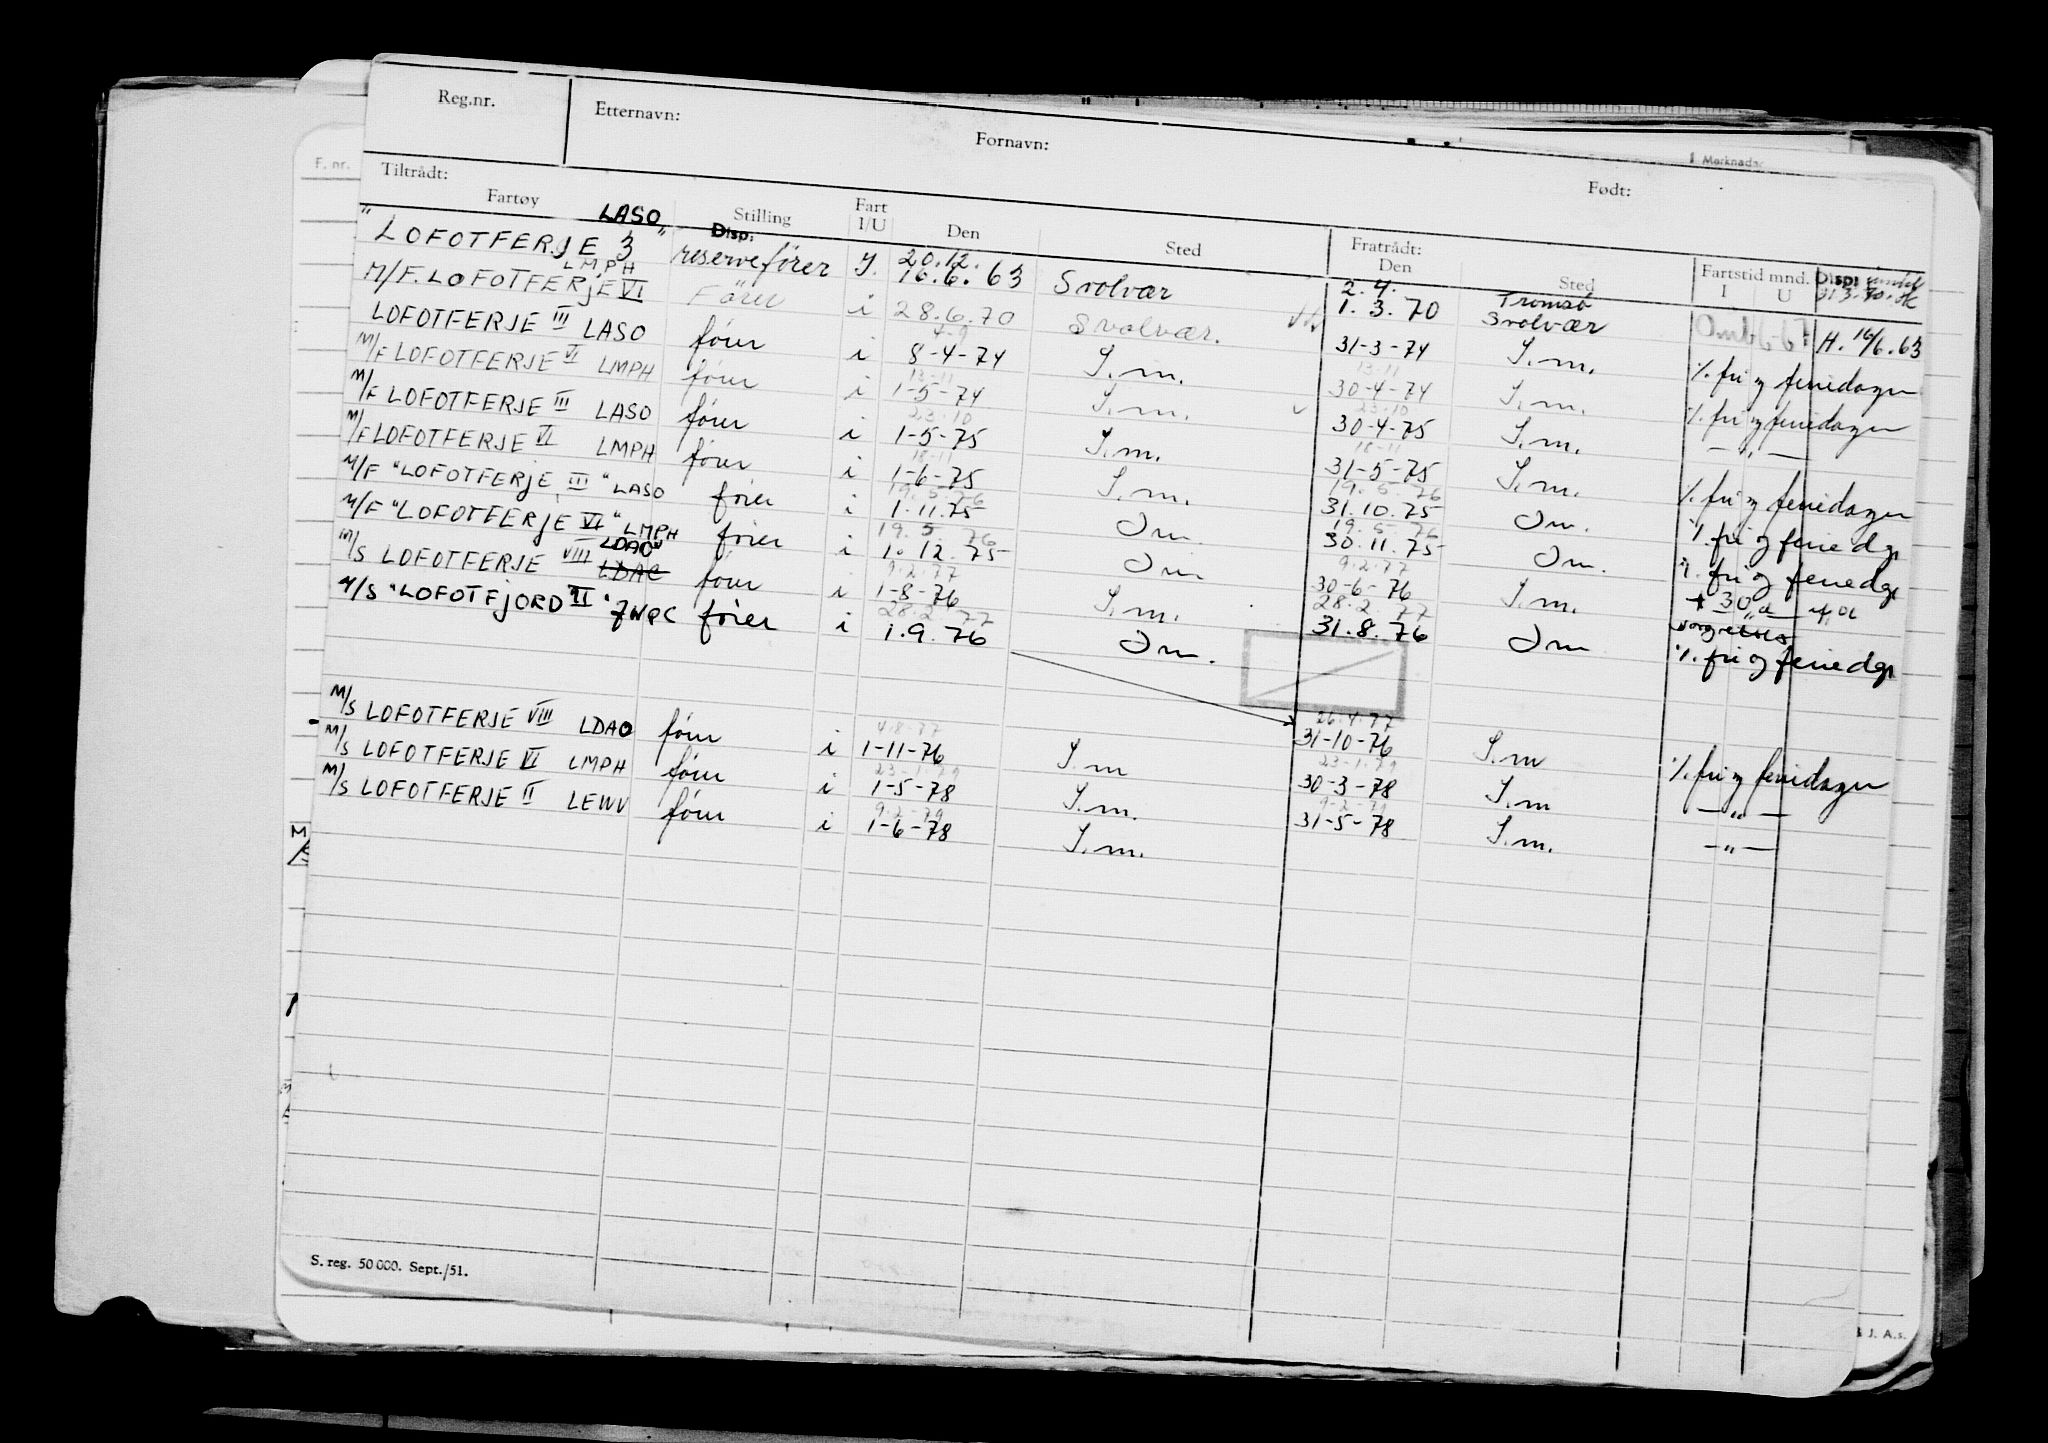 Reg.nr. Etternavn: Fornavn: Født:
F. nr. Merknader
Tiltrådt: Fratrådt:
Fartøy Stilling Fart I/U Den Sted Den Sted Fartstid mnd. I U
LASO Disp: 20.12. 2.4. Tromsø Disp: 31.3.70
"LOFOTFERJE 3" reservefører I. 16.6.63 Svolvær 1.3.70 Svolvær H. 16/6.63
LMPH
M/F. LOFOTFERJE VI Fører i 28.6.70 Svolvær. 31-3-74 S.m. % fri og feriedager
4-9
LOFOTFERJE III LASO fører i 8-4-74 S.m. 30-4-74 S.m. % fri og feriedager
13-11 13-11
M/F LOFOTFERJE VI LMPH fører i 1-5-74 S.m. 30-4-75 S.m. — „ —
23.10 23.10
M/F LOFOTFERJE III LASO fører i 1-5-75 S.m. 31-5-75 S.m. % fri og feriedager
18-11 18-11
M/F LOFOTFERJE VI LMPH fører i 1-6-75 S.m. 31.10.75 Sm. % fri og feriedgr
19.5.76 19.5.76
M/F "LOFOTFERJE III" LASO fører i 1.11.75 Sm. 30.11.75 Sm. % fri og feriedgr
19.5.76 19.5.76
M/F "LOFOTFERJE VI" LMPH fører i 1.12.75 Sm. 30-6-76 S.m. + 30
9.2.77 9.2.77
M/S LOFOTFERJE VIII LDAO LDAC fører i 1-8-76 S.m. 31.8.76 Sm % fri og feriedgr
28.2.77 28.2.77
M/S "LOFOTFJORD II" JWPC fører i 1.9.76 Sm. 31-10-76 S.m % fri og feriedager
26.4.77
M/S LOFOTFERJE VIII LDAO fører i 1-11-76 S.m 30-3-78 S.m — „ —
4.8.77 23-1.79
M/S LOFOTFERJE VI LMPH fører i 1-5-78 S.m. 31-5-78 S.m. — „ —
23-1.79 9-2-79
M/S LOFOTFERJE II LEWV fører i 1-6-78 S.m.
9-2-79
S. reg. 50 000. Sept./51.
J. A.s.